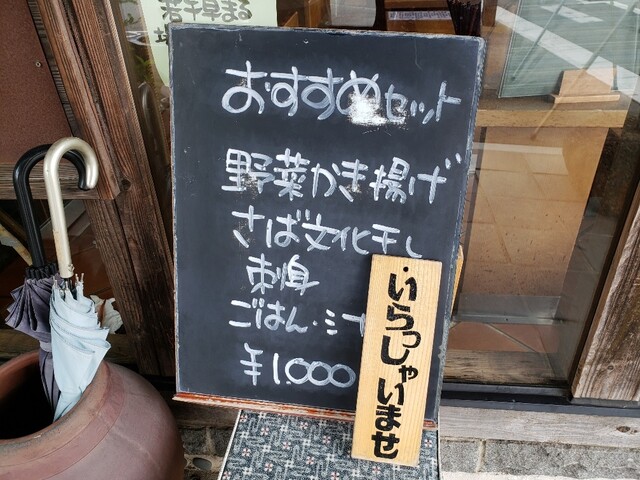 若干早まる
おすすめセット
野菜かき揚げ
さば文化干し
刺身
ごはん・ミ
¥1.000
・いらっしゃいませ